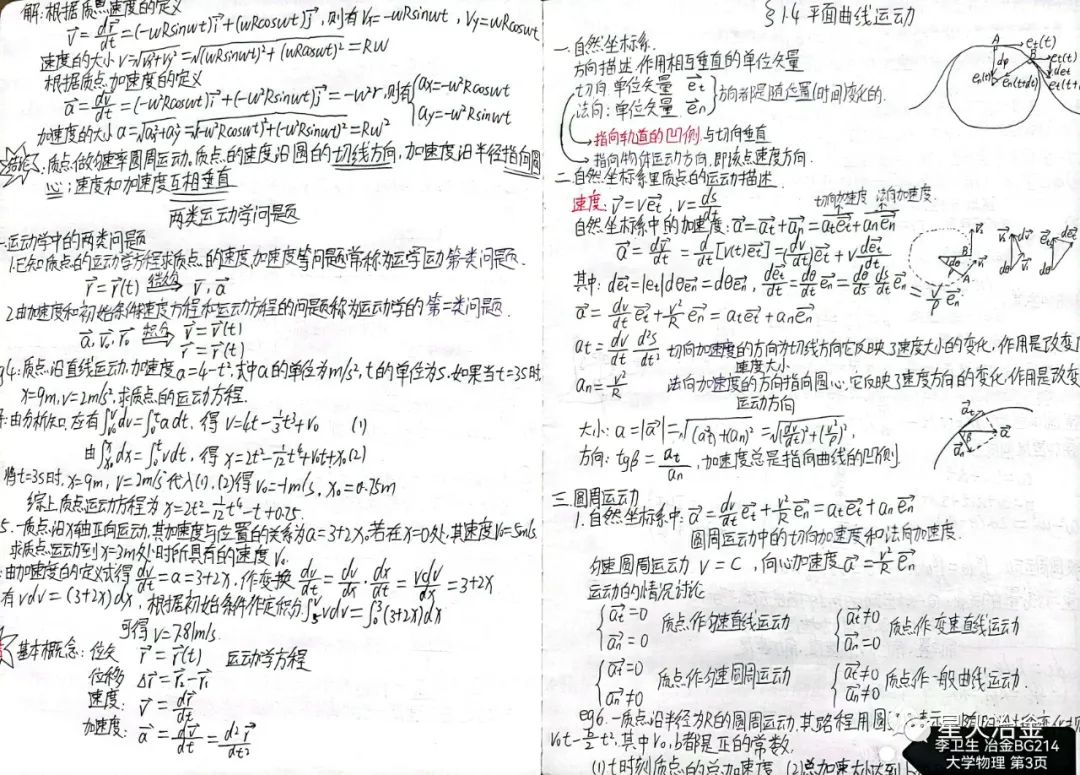 解:根据质点速度的定义
v⃗=dr⃗/dt=(-wRsinwt)i⃗+(wRcoswt)j⃗,则有Vx=-wRsinwt,Vy=wRcoswt
速度的大小v=√(vx²+vy²)=√((wRsinwt)²+(wRcoswt)²)=RW
根据质点加速度的定义
a⃗=dv⃗/dt=(-w²Rcoswt)i⃗+(-w²Rsinwt)j⃗=-w²r,则有{ax=-w²Rcoswt
ay=-w²Rsinwt
加速度的大小a=√(ax²+ay²)=√((-w²Rcoswt)²+(-w²Rsinwt)²)=RW²
结论:质点做匀速率圆周运动,质点的速度沿圆的切线方向,加速度沿半径指向圆
心;速度和加速度互相垂直
两类运动学问题
一.运动学中的两类问题
1.已知质点的运动学方程求质点的速度,加速度等问题常称为运学动第一类问题.
r⃗=r⃗(t) → v⃗,a⃗
2.由加速度和初始条件求速度方程和运动方程的问题称为运动学的第二类问题.
a⃗,v⃗₀,r⃗₀ → v⃗=v⃗(t)
r⃗=r⃗(t)
g4:质点沿直线运动,加速度a=4-t²,式中a的单位为m/s²,t的单位为s.如果当t=3s时,
x=9m,v=2m/s,求质点的运动方程.
:由分析知,应有∫dv=∫adt,得v=4t-1/3t³+v₀ (1)
由∫dx=∫vdt,得x=2t²-1/12t⁴+v₀t+x₀(2)
将t=3s时,x=9m,v=2m/s代入(1),(2)得v₀=-1m/s,x₀=0.75m
综上质点运动方程为x=2t²-1/12t⁴-t+0.75.
5.一质点沿x轴正向运动,其加速度与位置的关系为a=3+2x,若在x=0处,其速度V₀=5m/s.
求质点运动到x=3m处时所具有的速度V.
:由加速度的定义式得dv/dt=a=3+2x,作变换dv/dt=dv/dx·dx/dt=vdv/dx=3+2x
有vdv=(3+2x)dx,根据初始条件作定积分∫₅ᵛvdv=∫₀³(3+2x)dx
可得v=7.81m/s.
基本概念:位矢 r⃗=r⃗(t) 运动学方程
位移 Δr⃗=r⃗₂-r⃗₁
速度: v⃗=dr⃗/dt
加速度: a⃗=dv⃗/dt=d²r⃗/dt²
§1.4 平面曲线运动
一.自然坐标系.
方向描述,作用相互垂直的单位矢量
切向:单位矢量 e⃗t
法向:单位矢量 e⃗n
方向都是随位置(时间)变化的.
指向轨道的凹侧,与切向垂直
指向物体运动方向,即该点速度方向.
二.自然坐标系里质点的运动描述.
速度:v⃗=ve⃗t,v=ds/dt
切向加速度 法向加速度
自然坐标系中的加速度:a⃗=a⃗t+a⃗n=ate⃗t+ane⃗n
a⃗=dv⃗/dt=d/dt[v(t)e⃗t]=(dv/dt)e⃗t+v de⃗t/dt
其中:de⃗t=|et|dθe⃗n=dθe⃗n,de⃗t/dt=dθ/dt e⃗n=dθ/ds ds/dt e⃗n=v/ρ e⃗n
a⃗=dv/dt e⃗t+v²/R e⃗n=ate⃗t+ane⃗n
at=dv/dt d²s/dt² 切向加速度的方向为切线方向它反映了速度大小的变化,作用是改变
速度大小
an=v²/R 法向加速度的方向指向圆心,它反映了速度方向的变化,作用是改变
运动方向
大小:a=|a⃗|=√((at)²+(an)²)=√((dv/dt)²+(v²/ρ)²),
方向:tgβ=at/an,加速度总是指向曲线的凹侧.
三.圆周运动
1.自然坐标系中:a⃗=dv/dt e⃗t+v²/R e⃗n=ate⃗t+ane⃗n
圆周运动中的切向加速度和法向加速度.
匀速圆周运动 V=C,向心加速度a⃗=v²/R e⃗n
运动的情况讨论
{a⃗t=0 a⃗n=0 质点作匀速直线运动 {a⃗t≠0 a⃗n=0 质点作变速直线运动
{a⃗t=0 a⃗n≠0 质点作匀速圆周运动 {a⃗t≠0 a⃗n≠0 质点作一般曲线运动.
eg6.一质点沿半径为R的圆周运动,其路程用圆
V₀t-b/2t²,其中V₀,b都是正的常数.
(1)t时刻质点的总加速度 (2)总加速大小达到b
星火冶金
李卫生 冶金BG214
大学物理 第3页